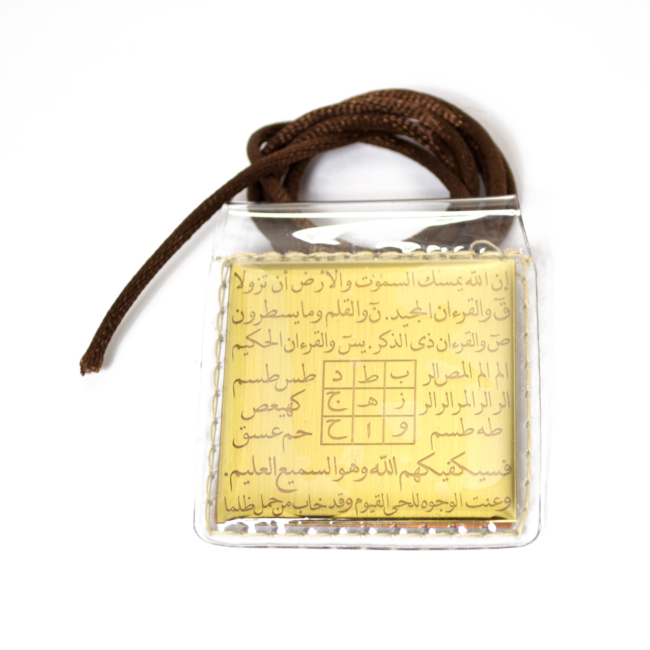 إن الله يمسك السموت والأرض أن تزولا
قٓ والقرءان المجيد. نٓ والقلم ومايسطرون
صٓ والقرءان ذى الذكر. يسٓ والقرءان الحكيم
الم الم المص الر ب ط د طس طسم
الر الر المر الر الر ز هـ ج كهيعص
طه طسم و ا ح حم عسق
فسيكفيكهم الله وهوالسميع العليم.
وعنت الوجوه للحي القيوم وقد خاب من حمل ظلما